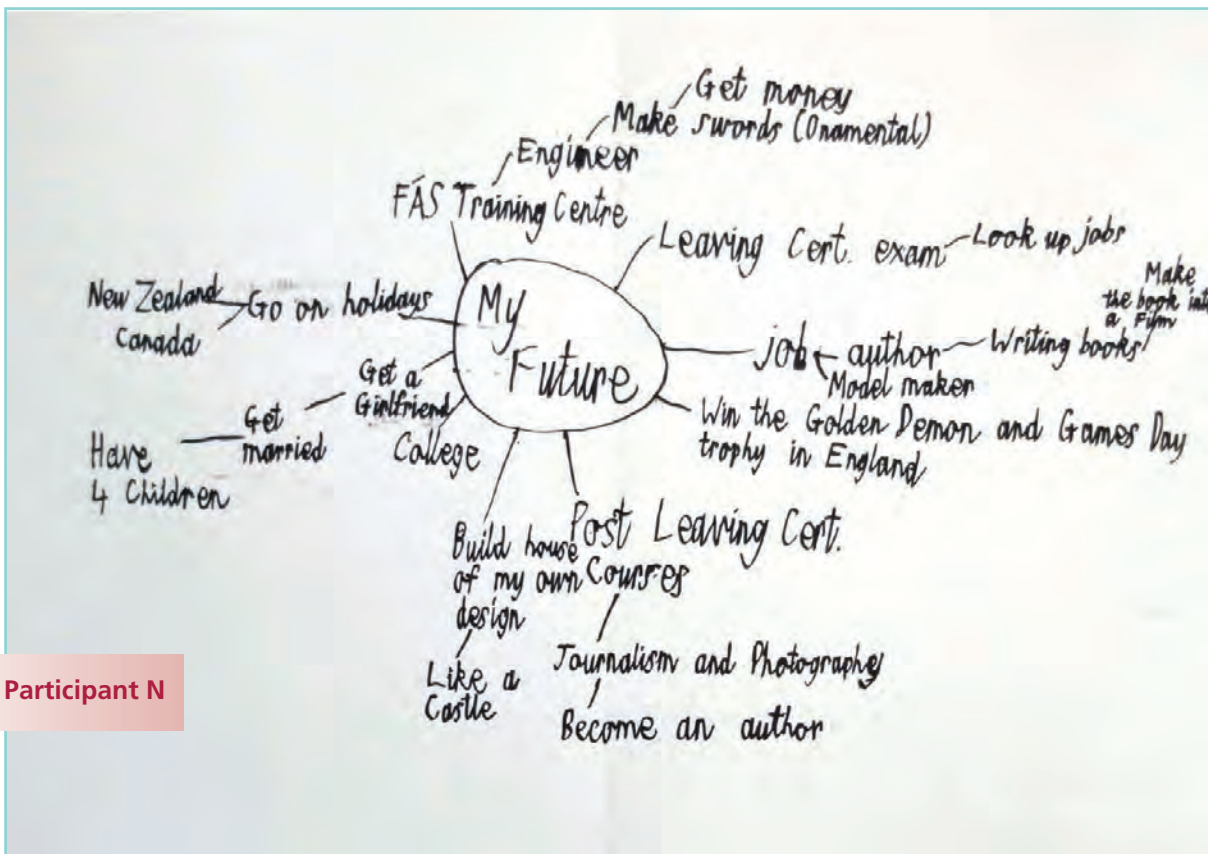 My
Future
FÁS Training Centre
Engineer
Make swords (Onamental)
Get money
Leaving Cert. exam
Look up jobs
job
author
Model maker
Writing books
Make
the book into
a Film
Win the Golden Demon and Games Day
trophy in England
Post Leaving Cert.
Courses
Journalism and Photography
Become an author
Build house
of my own
design
Like a
Castle
College
Get a
Girlfriend
Get
married
Have
4 Children
Go on holidays
New Zealand
Canada
Participant N